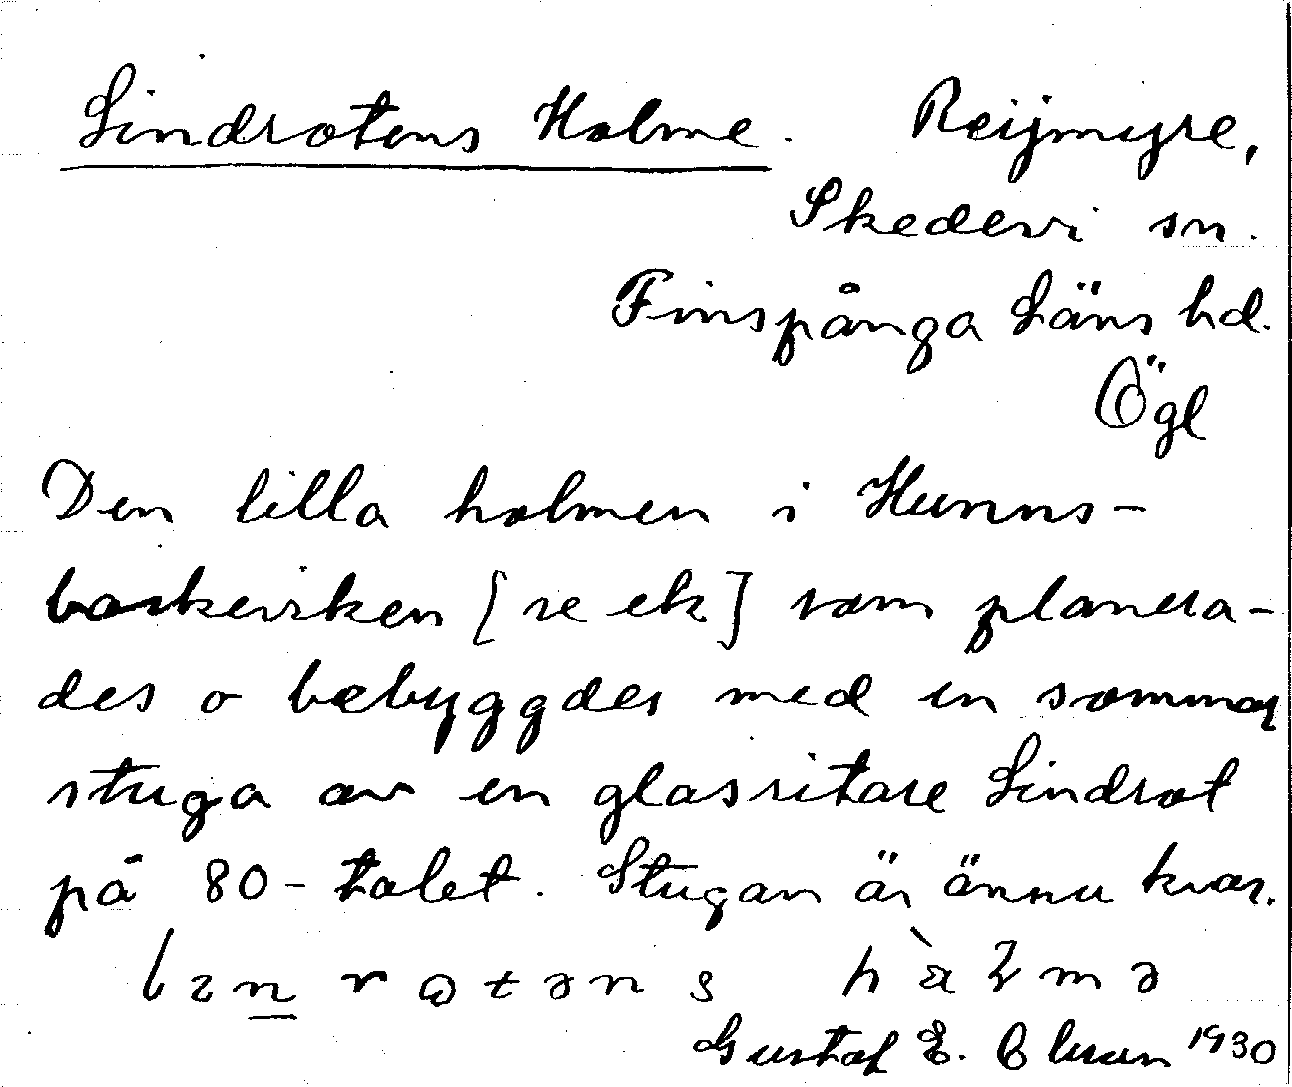 Lindrotens Holme. Reijmyre,
Skedevi sn.
Finspånga läns hd.
Ögl
Den lilla holmen i Hunns-
[se ek] som planera-
des o bebyggdes med en sommar
stuga av en glasritare Lindrot
på 80-talet. Stugan är ännu kvar.
Gustaf E. 1930